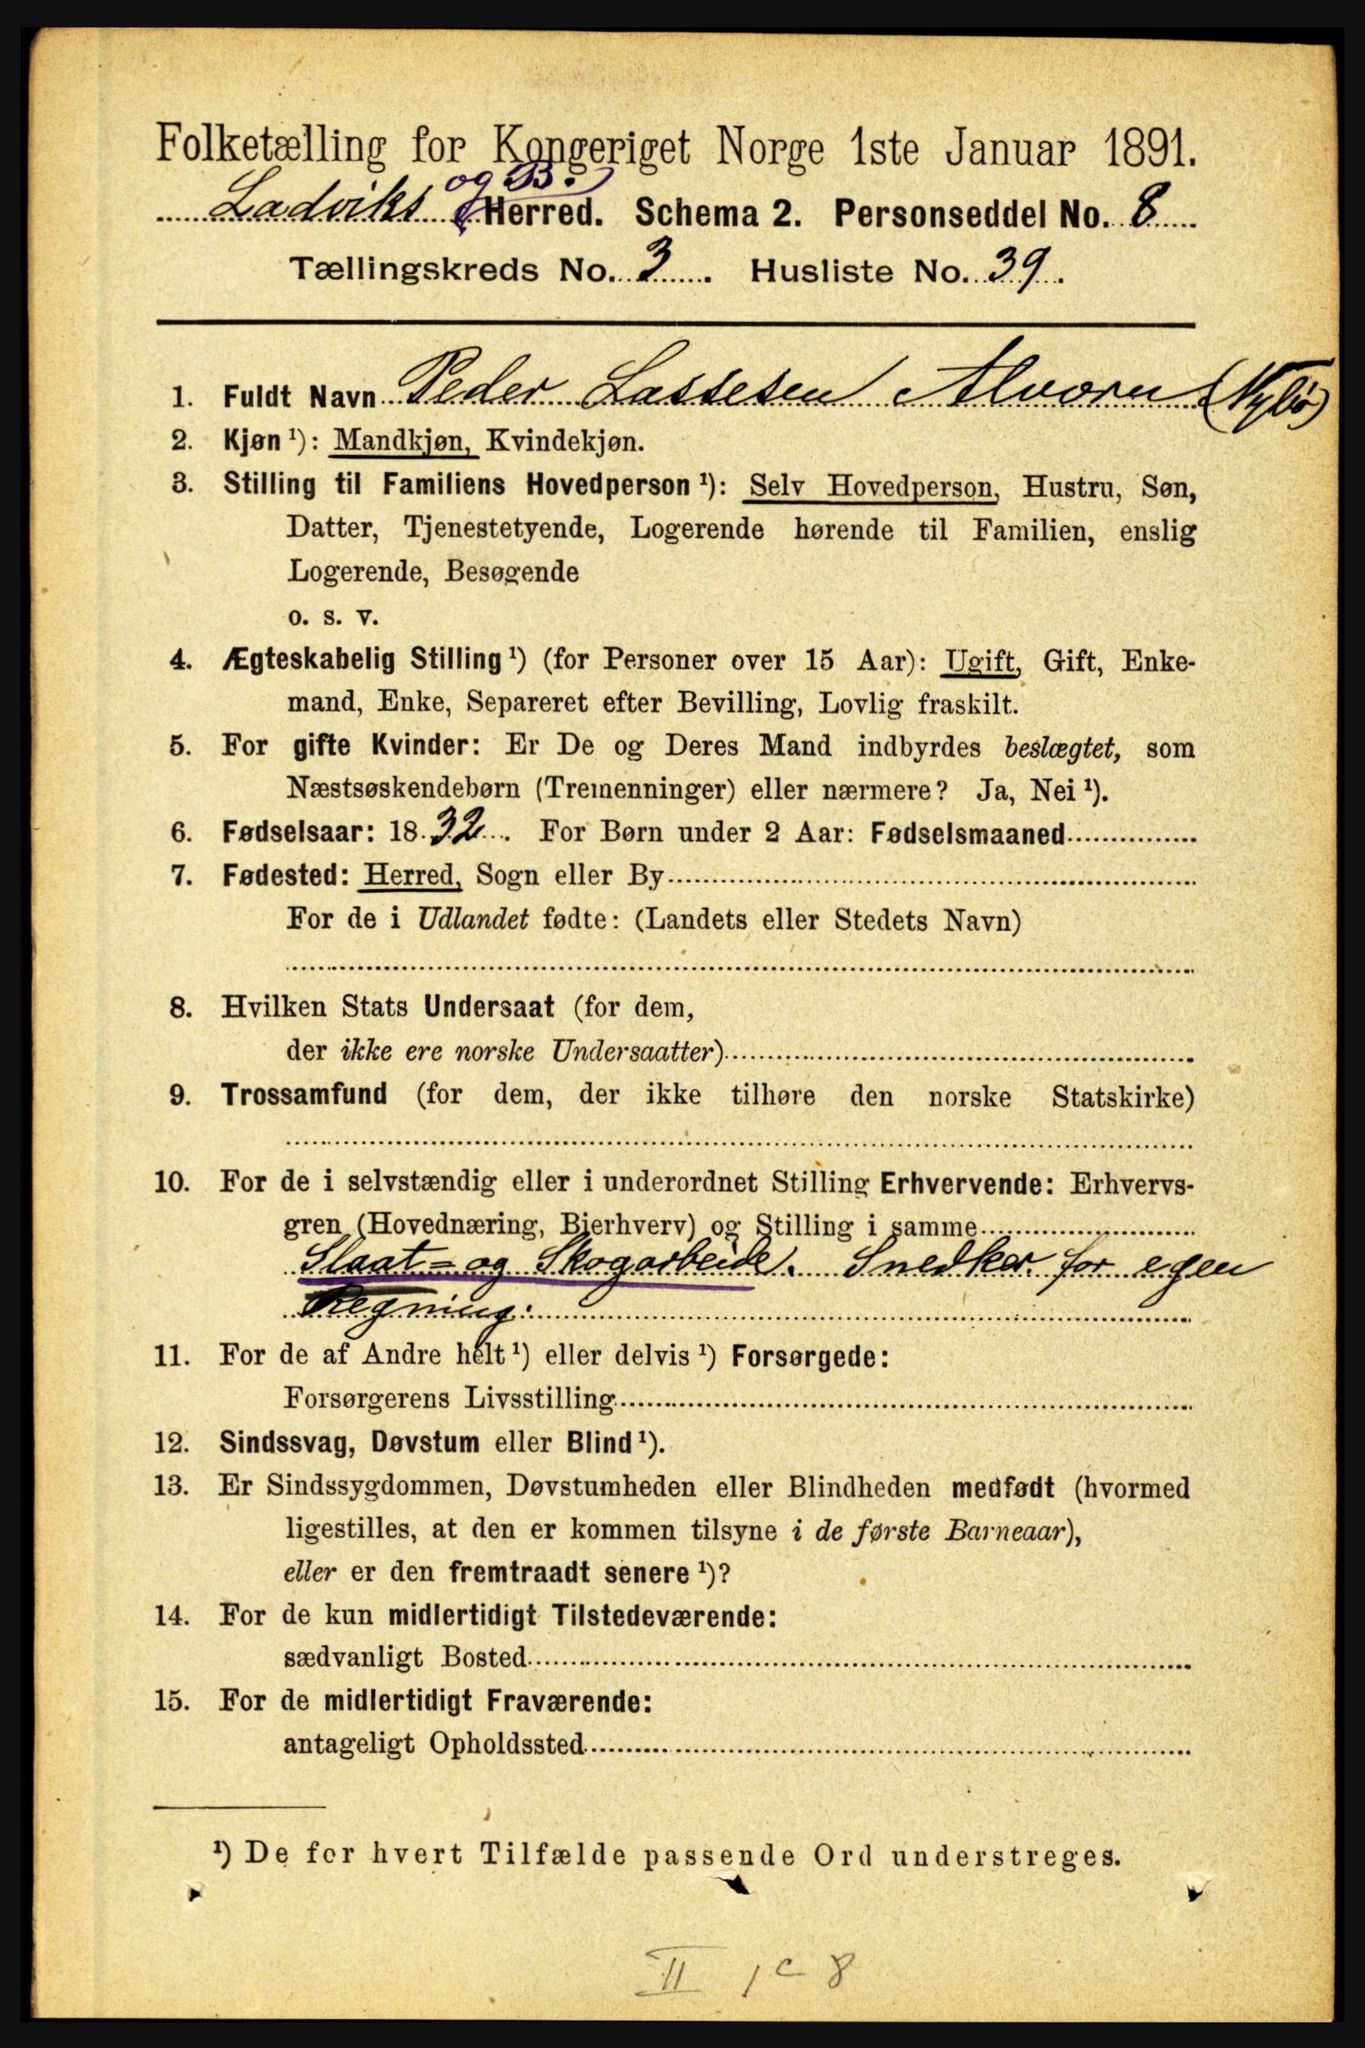 Folketælling for Kongeriget Norge 1ste Januar 1891.
og B.
Ladviks Herred. Schema 2. Personseddel No. 8
Tællingskreds No. 3. Husliste No. 39.
1. Fuldt Navn Peder Lassesen Alværn (Nybø)
2. Kjøn ¹): Mandkjøn, Kvindekjøn.
3. Stilling til Familiens Hovedperson ¹): Selv Hovedperson, Hustru, Søn,
Datter, Tjenestetyende, Logerende hørende til Familien, enslig
Logerende, Besøgende
o. s. v.
4. Ægteskabelig Stilling ¹) (for Personer over 15 Aar): Ugift, Gift, Enke-
mand, Enke, Separeret efter Bevilling, Lovlig fraskilt.
5. For gifte Kvinder: Er De og Deres Mand indbyrdes beslægtet, som
Næstsøskendebørn (Tremenninger) eller nærmere? Ja, Nei ¹).
6. Fødselsaar: 1832. For Børn under 2 Aar: Fødselsmaaned
7. Fødested: Herred, Sogn eller By
For de i Udlandet fødte: (Landets eller Stedets Navn)
8. Hvilken Stats Undersaat (for dem,
der ikke ere norske Undersaatter)
9. Trossamfund (for dem, der ikke tilhøre den norske Statskirke)
10. For de i selvstændig eller i underordnet Stilling Erhvervende: Erhvervs-
gren (Hovednæring, Bierhverv) og Stilling i samme
Slaat- og Skogarbeide. Snedker for egen
Regning.
11. For de af Andre helt ¹) eller delvis ¹) Forsørgede:
Forsørgerens Livsstilling
12. Sindssvag, Døvstum eller Blind ¹).
13. Er Sindssygdommen, Døvstumheden eller Blindheden medfødt (hvormed
ligestilles, at den er kommen tilsyne i de første Barneaar),
eller er den fremtraadt senere ¹)?
14. For de kun midlertidigt Tilstedeværende:
sædvanligt Bosted
15. For de midlertidigt Fraværende:
antageligt Opholdssted
¹) De for hvert Tilfælde passende Ord understreges.
II 1 c 8